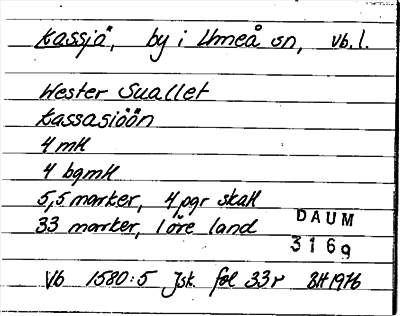 Kassjö, by i Umeå sn, vb.l.
Wester Suallet
Kassasiöön
4 mtl
4 bgmtl
5,5 marker, 4 pgr skatt
33 marker, 1 öre land
DAUM
3169
Vb 1580:5 Jsk. fol 33r BH 1976